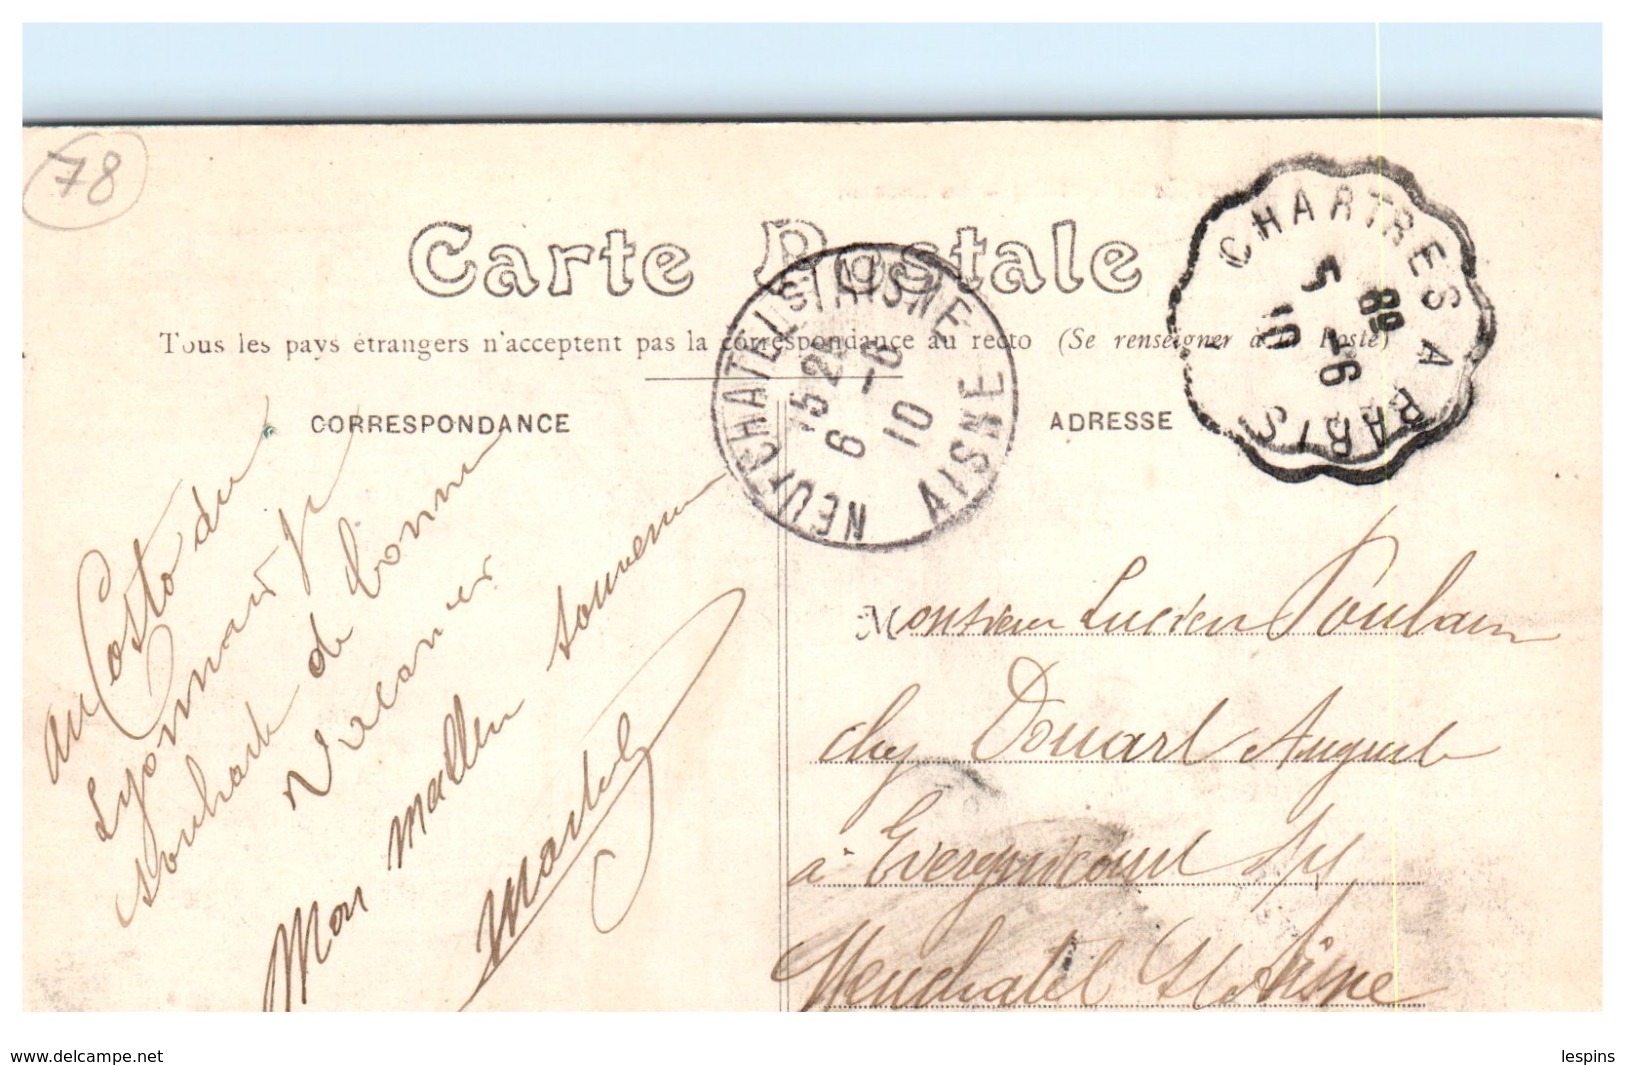 78
Carte Postale
Tous les pays étrangers n'acceptent pas la correspondance au recto (Se renseigner à la Poste)
CORRESPONDANCE
ADRESSE
CHARTRES A PARIS
5 -6
10
NEUFCHATEL S/AISNE AISNE
15 2
6 -6
10
au
du
je
souhaite de bonne
Vacances
Mon meilleur souvenir
Marcel
Monsieur Lucien Poulain
chez Douart Auguste
à Evergnicourt Par
Neuchatel S/ Aisne
www.delcampe.net
lespins